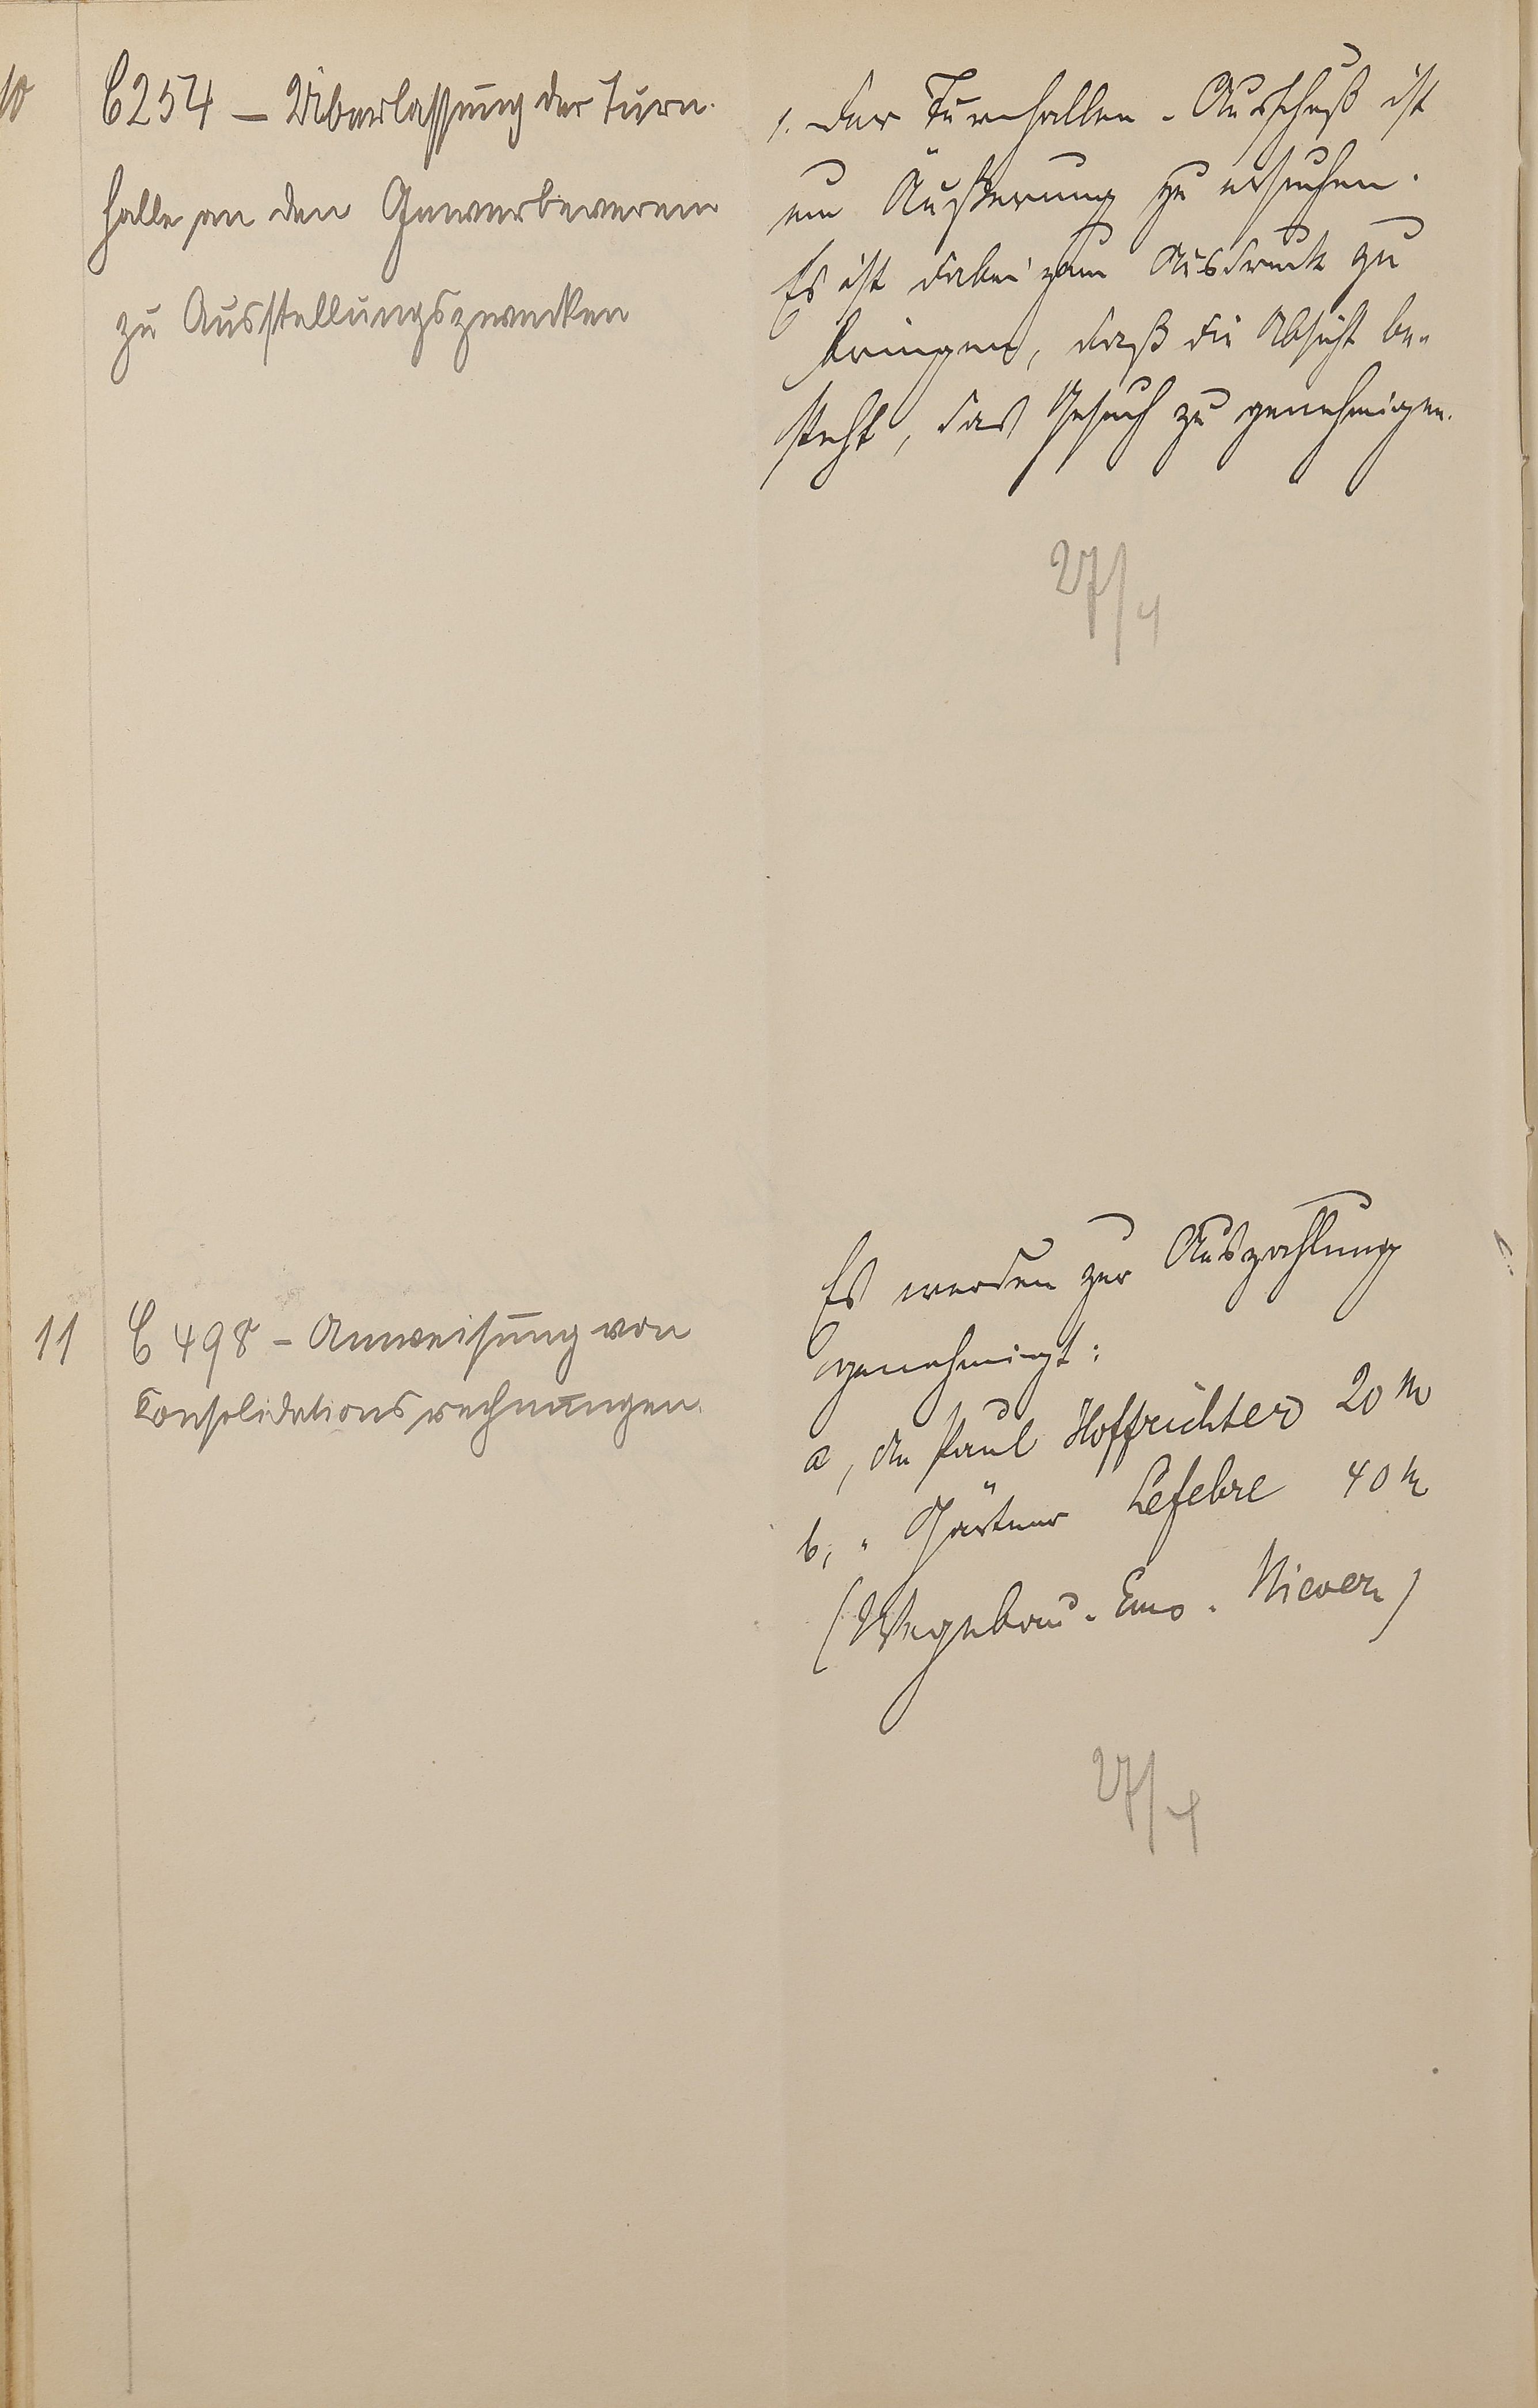 10
C 254 – Überlassung der Turn-
halle an den Gewerbeverein
zu Ausstellungszwecken
1. Der Turnhallen-Ausschuß ist
um Äußerung zu ersuchen.
Es ist dabei zum Ausdruck zu
bringen, daß die Absicht be-
steht, das Gesuch zu genehmigen.
27/4
11
C 498 – Anweisung von
Consolidationsrechnungen.
Es werden zur Auszahlung
genehmigt:
a, An Paul Hoffrichter 20 M
b, " Gärtner Lefebre 40 M
(Wegebau-Ems-Nievern)
27/4